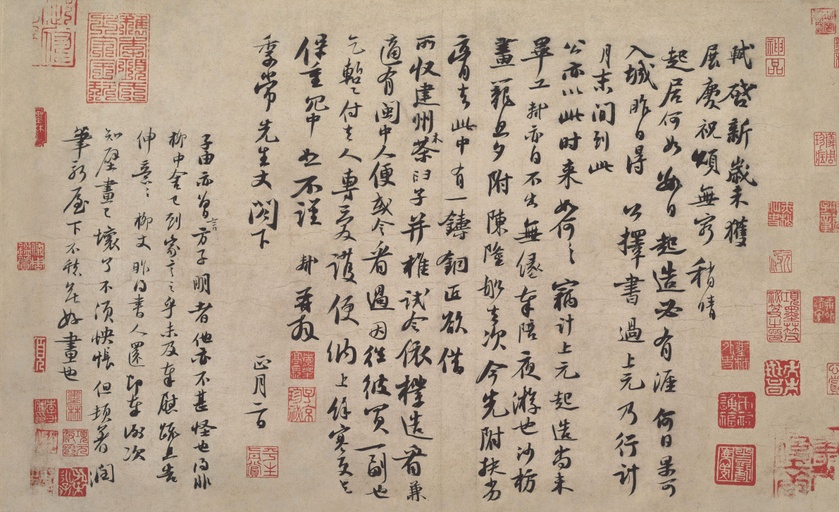 軾啓新歲未獲
展慶祝頌無窮稍晴
起居何如數日起造必有涯何日果可
入城昨日得公擇書過上元乃行計
月末間到此
公亦以此時来如何〻竊計上元起造尚未
畢工軾亦自不出無緣奉陪夜游也沙枋
畫籠旦夕附陳隆舩去次今先附扶劣
膏去此中有一鑄銅匠欲借
所收建州木茶臼子并椎試令依樣造看兼
適有閩中人便或令看過因往彼買一副也
乞暫付去人專愛護便納上餘寒更乞
保重冗中恕不謹軾再拜
季常先生丈閤下
正月二日
子由亦曾言方子明者他亦不甚怪也得非
柳中舍已到家言之乎未及奉慰疏且告
伸意〻柳丈昨得書人還即奉謝次
知壁畫已壞了不須怏悵但頓著潤
筆新屋下不愁無好畫也